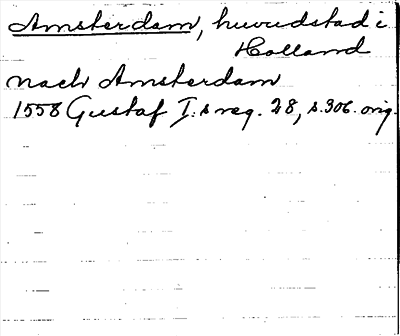 Amsterdam, huvudstad i
Holland
nach Amsterdam
1558 Gustaf I:s reg. 28, s. 306. orig.